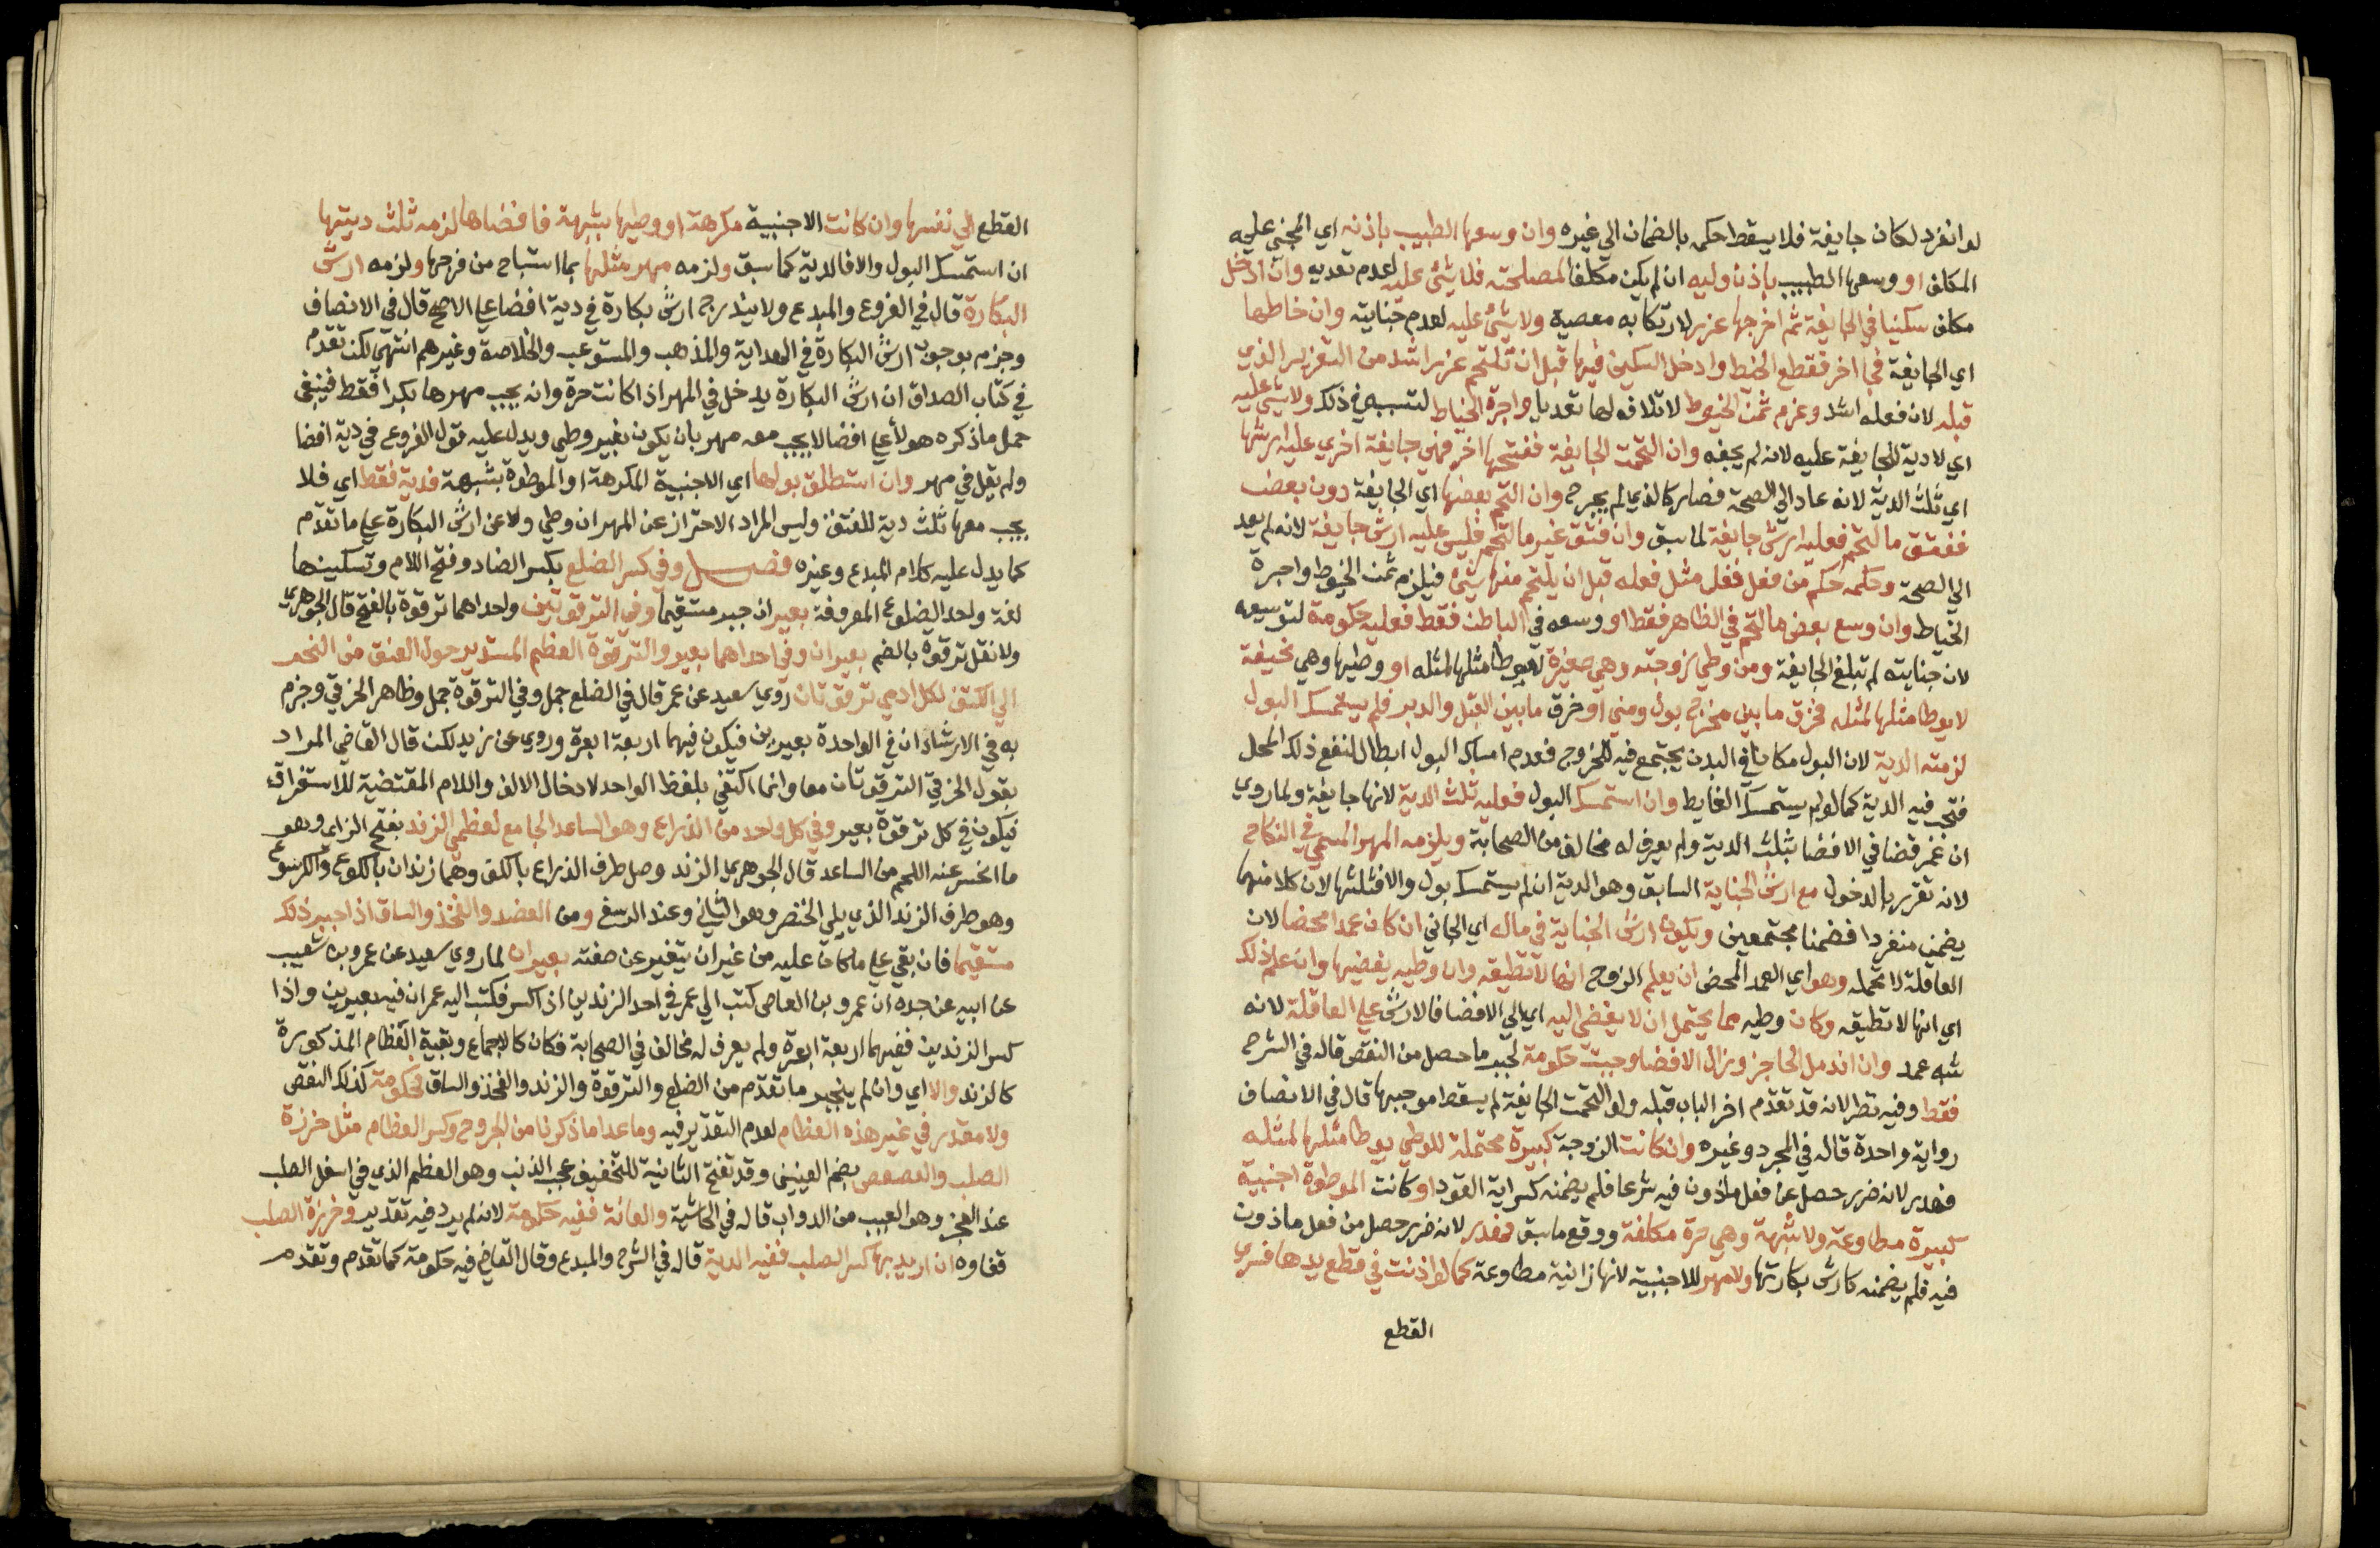 لو انفرد لكان جايفة فلا يسقط حكمه بالضمان الي غيره وان وسعها الطبيب باذنه اي المجني عليه
المكلف او وسعها الطبيب باذن وليه ان لم يكن مكلفا لمصلحته فلا شئ عليه لعدم تعديه وان ادخل
مكلف سكينا في الجايفة ثم اخرجها عزر لارتكابه معصية ولا شئ عليه لعدم جنايته وان خاطها
اي الجايفة فجا اخر فقطع الخيط وادخل السكين فيها قبل ان تلتحم عزر اشد من التعزير الذي
قبله لان فعله اشد وغرم ثمن الخيوط لاتلافه لها تعديا واجرة الخياط لتسببه في ذلك ولا شئ عليه
اي لا دية للجايفة عليه لانه لم يجفه وان التحمت الجايفة ففتحها اخر فهي جايفة اخري عليه ارشها
اي ثلث الدية لانه عاد الي الصحة فصار كالذي لم يجرح وان التحم بعضها اي الجايفة دون بعض
ففتق ما التحم فعليه ارش جايفة لما سبق وان فتق غير ما التحم فليس عليه ارش جايفة لانه لم يعد
الي الصحة وحكمه حكم من فعل فعل مثل فعله قبل ان يلتحم منها شئ فيلزم ثمن الخيوط واجرة
الخياط وان وسع بعض ما التحم في الظاهر فقط او وسعه في الباطن فقط فعليه حكومة لتوسيعه
لان جنايته لم تبلغ الجايفة ومن وطي زوجته وهي صغيرة لا يوطا مثلها لمثله او وطيها وهي نحيفة
لا يوطا مثلها لمثله فخرق ما بين مخرج بول ومني او خرق ما بين القبل والدبر فلم يستمسك البول
لزمته الدية لان البول مكانا في البدن يجتمع فيه للخروج فعدم امساك البول ابطال لنفع ذلك المحل
فتجب فيه الدية كما لو لم يستمسك الغايط وان استمسك البول فعليه ثلث الدية لانها جايفة ولما روي
ان عمر قضا في الافضا بثلث الدية ولم يعرف له مخالف من الصحابة ويلزمه المهر المسمي في النكاح
لانه تقرر بالدخول مع ارش الجناية السابق وهو الدية ان لم يستمسك بول والا فثلثها لان كلا منهما
يضمن منفردا فضمنا مجتمعين ويكون ارش الجناية في ماله اي الجاني ان كان عمدا محضا لان
العاقلة لا تحمله وهو اي العمد المحض ان يعلم الزوج انها لا تطيقه وان وطيه يفضيها وان علم ذلك
اي انها لا تطيقه وكان وطيه مما يحتمل ان لا يفضي اليه اي الي الافضا فالارش علي العاقلة لانه
شبه عمد وان اندمل الحاجز وزال الافضا وجبت حكومة لجبر ما حصل من النقص قاله في الشرح
فقط وفيه نظر لانه قد تقدم اخر الباب قبله ولو التحمت الجايفة لم يسقط موجبها قال في الانصاف
رواية واحدة قاله في المجرد وغيره وان كانت الزوجة كبيرة محتملة للوطي يوطا مثلها لمثله
فهدر لانه ضرر حصل عن فعل ماذون فيه شرعا فلم يضمنه كسراية القود او كانت الموطوة اجنبية
كبيرة مطاوعة ولا شبهة وهي حرة مكلفة ووقع ما سبق فهدر لانه ضرر حصل من فعل ماذون
فيه فلم يضمنه كارش بكارتها ولا مهر للاجنبية لانها زانية مطاوعة كما لو اذنت في قطع يدها فسري
القطع
القطع الي نفسها وان كانت الاجنبية مكرهة او وطيها بشبهة فافضاها لزمه ثلث ديتها
ان استمسك البول والا فالدية كما سبق ولزمه مهر مثلها بما استباح من فرجها ولزمه ارش
البكارة قال في الفروع والمبدع ولا يندرج ارش بكارة في دية افضا علي الاصح قال في الانصاف
وجزم بوجوب ارش البكارة في الهداية والمذهب والمستوعب والخلاصة وغيرهم انتهي لكن تقدم
في كتاب الصداق ان ارش البكارة يدخل في المهر اذا كانت حرة وانه يجب مهرها بكرا فقط فينبغي
حمل ما ذكره هولا علي افضا لا يجب معه مهر بان يكون بغير وطي ويدل عليه قول الفروع في دية افضا
ولم يقل في مهر وان استطلق بولها اي الاجنبية المكرهة او الموطوة بشبهة فدية فقط اي فلا
يجب معها ثلث دية للفتق وليس المراد الاحتراز عن المهر ان وطي ولا عن ارش البكارة علي ما تقدم
كما يدل عليه كلام المبدع وغيره فصل وفي كسر الضلع بكسر الضاد وفتح اللام وتسكينها
لغة واحد الضلوع المعروفة بعير ان جبر مستقيما وفي الترقوتين واحداهما ترقوة بالفتح قال الجوهري
ولا تقل ترقوة بالضم بعيران وفي احداهما بعير والترقوة العظم المستدير حول العنق من النحر
الي الكتف لكل ادمي ترقوتان روي سعيد عن عمر قال في الضلع جمل وفي الترقوة جمل وظاهر الخرقي وجزم
به في الارشاد ان في الواحدة بعيرين فيكون فيهما اربعة ابعرة وروي عن زيد لكن قال القاضي المراد
بقول الخرقي الترقوتان معا وانما اكتفي بلفظ الواحد لادخال الالف واللام المقتضية للاستغراق
فيكون في كل ترقوة بعير وفي كل واحد من الذراع وهو الساعد الجامع لعظمي الزند بفتح الزاي وهو
ما انحسر عنه اللحم من الساعد قال الجوهري الزند وصل طرف الذراع بالكف وهما زندان بالكوع والكرسوع
وهو طرف الزند الذي يلي الخنصر وهو الناتي وعند الرسغ ومن العضد والفخذ والساق اذا جبر ذلك
مستقيما فان بقي علي ما كان عليه من غير ان يتغير عن صفته بعيران لما روي سعيد عن عمرو بن شعيب
عن ابيه عن جده ان عمرو بن العاص كتب الي عمر في احد الزندين اذا كسر فكتب اليه عمر ان فيه بعيرين واذا
كسر الزندين ففيهما اربعة ابعرة ولم يعرف له مخالف في الصحابة فكان كالاجماع وبقية العظام المذكورة
كالزند والا اي وان لم ينجبر ما تقدم من الضلع والترقوة والزند والفخذ والساق فحكومة لذلك النقص
ولا مقدر في غير هذه العظام لعدم التقدير فيه وما عدا ما ذكرنا من الجروح وكسر العظام مثل خرزة
الصلب والعصعص بضم العينين وقد تفتح الثانية للتخفيف عجب الذنب وهو العظم الذي في اسفل الصلب
عند العجز وهو العسيب من الدواب قاله في الحاشية والعانة ففيه حكومة لانه لم يرد فيه تقدير وخرزة الصلب
فقاره ان اريد بها كسر الصلب ففيه الدية قاله في الشرح والمبدع وقال القاضي فيه حكومة كما تقدم وتقدم